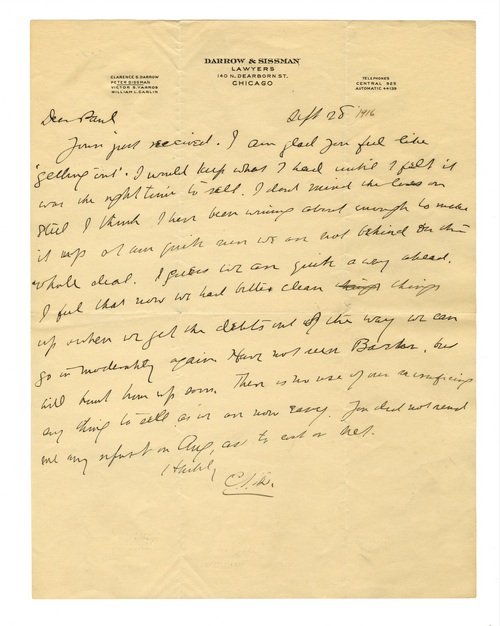 DARROW & SISSMAN
LAWYERS
140 N. DEARBORN ST.
CHICAGO
CLARENCE S. DARROW
PETER SISSMAN
VICTOR S. YARROS
WILLIAM L. CARLIN
TELEPHONES
CENTRAL 925
AUTOMATIC 44139
Sept 28 1916
Dear Paul
Yours just received. I am glad you feel like
"getting out". I would keep what I had until I felt it
was the right time to sell. I dont mind the loss on
Steel I think I have been winning about enough to make
it up at any rate we are not behind on the
whole deal. I guess we are quite a way ahead.
I feel that now we had better clean things things
up & when we get the debts out of the way we can
go in moderately again Have not seen Barker, but
will hunt him up soon. There is no use of our sacrificing
any thing to sell as we are now easy. You did not send
me any report on Aug, as to cost or net.